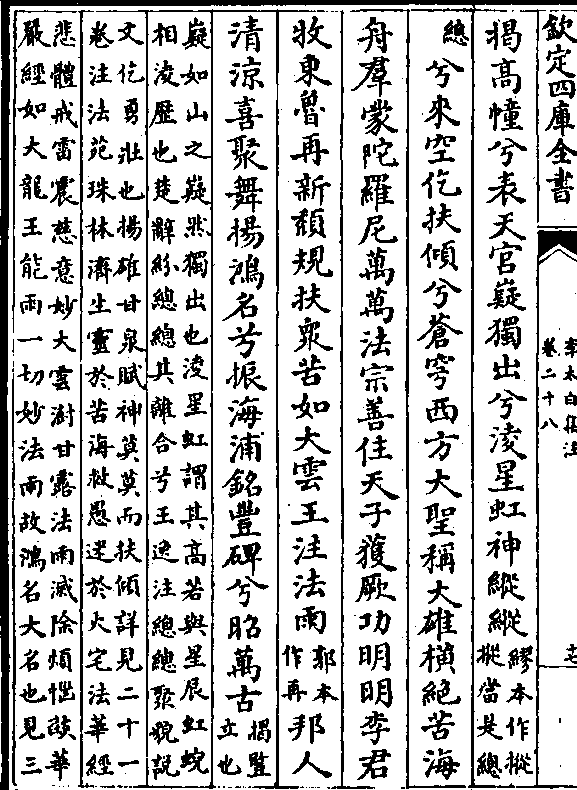 欽定四庫全書
李太白集注
卷二十八
十七
揭高幢兮表天宮嶷獨出兮淩星虹神縱縱
繆本作摐
摐當是總
總
兮來空仡扶傾兮蒼穹西方大聖稱大雄橫絕苦海
舟羣蒙陀羅尼萬萬法宗善住天子獲厥功明明李君
牧東魯再新頹規扶衆苦如大雲王注法雨
郭本
作再
邦人
清涼喜聚舞揚鴻名兮振海浦銘豐碑兮昭萬古
揭豎
立也
嶷如山之嶷然獨出也淩星虹謂其高若與星辰虹蜺
相淩歷也楚辭紛總總其離合兮王逸注總總聚貌説
文仡勇壯也揚雄甘泉賦神莫莫而扶傾詳見二十一
卷注法苑珠林濟生靈於苦海救愚迷於火宅法華經
悲體戒雷震慈意妙大雲澍甘露法雨滅除煩惱燄華
嚴經如大龍王能雨一切妙法雨故鴻名大名也見三